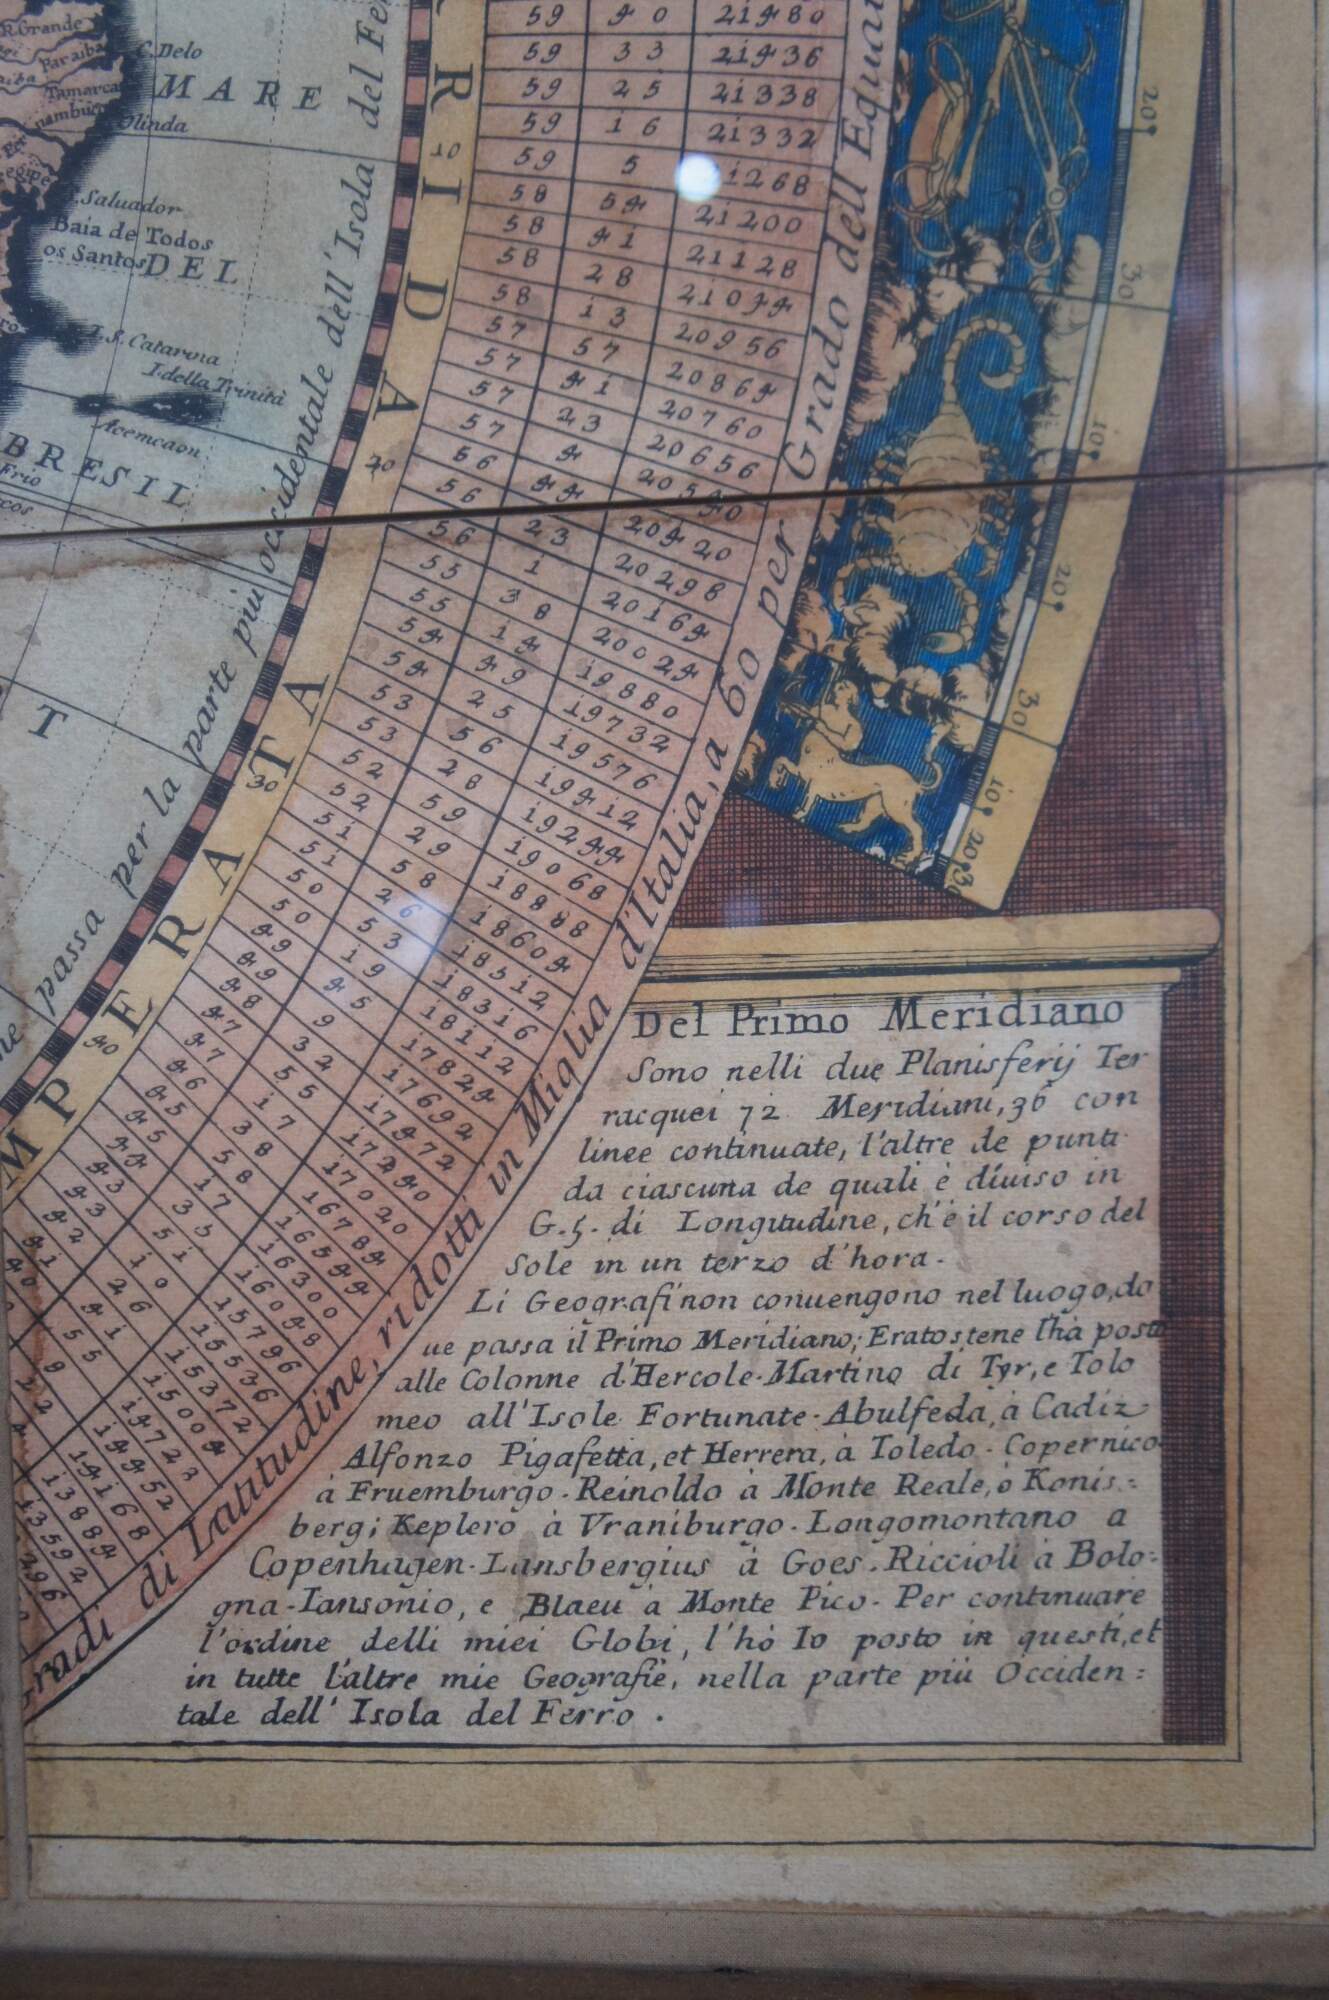 R.Grande
Paraiba
C. Delo
MARE
Tamarca
nambuco
Olinda
Saluador
Baia de Todos
os Santos
DEL
I. S. Catarina
I. della Trinità
Acemcaon
BRESIL
Frio
T
passa per la parte piu occidentale dell'Isola del Fe
RIDA
TATA
MPERATA
10
20
30
40
59 40 21480
59 33 21436
59 25 21338
59 16 21332
59 5 1268
58 54 21200
58 41 21128
58 28 21044
58 13 20956
57 57 20864
57 41 20760
57 23 20656
57 4 20540
56 44 20420
56 23 20298
56 1 20164
55 38 20024
55 14 19880
54 49 19732
54 25 19576
53 56 19412
53 28 19244
52 59 19068
52 29 18888
51 58 18604
51 26 18512
50 53 18316
50 19 18112
49 45 17824
49 9 17692
48 32 17472
47 55 17240
47 17 17020
46 38 16784
45 58 16544
45 17 16300
44 35 16048
43 51 15796
43 10 15536
42 26 15372
41 41 15004
Gradi di Latitudine, ridotti in Miglia d'Italia, a 60 per Grado dell'Equat
20
30
10
20
30
10
20
30
Del Primo Meridiano
Sono nelli due Planisferij Ter
racquei 72 Meridiani, 36 con
linee continuate, l'altre de punti
da ciascuna de quali è diuiso in
G.5. di Longitudine, ch'è il corso del
Sole in un terzo d'hora.
Li Geografi non conuengono nel luogo, do
ue passa il Primo Meridiano; Eratostene l'hà posto
alle Colonne d'Hercole. Martino di Tyr, e Tolo
meo all'Isole Fortunate. Abulfeda, à Cadiz
Alfonzo Pigafetta, et Herrera, à Toledo. Copernico
à Fruemburgo. Reinoldo à Monte Reale, ò Konis=
berg; Keplero à Vraniburgo. Longomontano a
Copenhagen. Lansbergius à Goes. Riccioli à Bolo=
gna. Iansonio, e Blaeu à Monte Pico. Per continuare
l'ordine delli miei Globi, l'hò Io posto in questi, et
in tutte l'altre mie Geografie, nella parte più Occiden=
tale dell' Isola del Ferro.